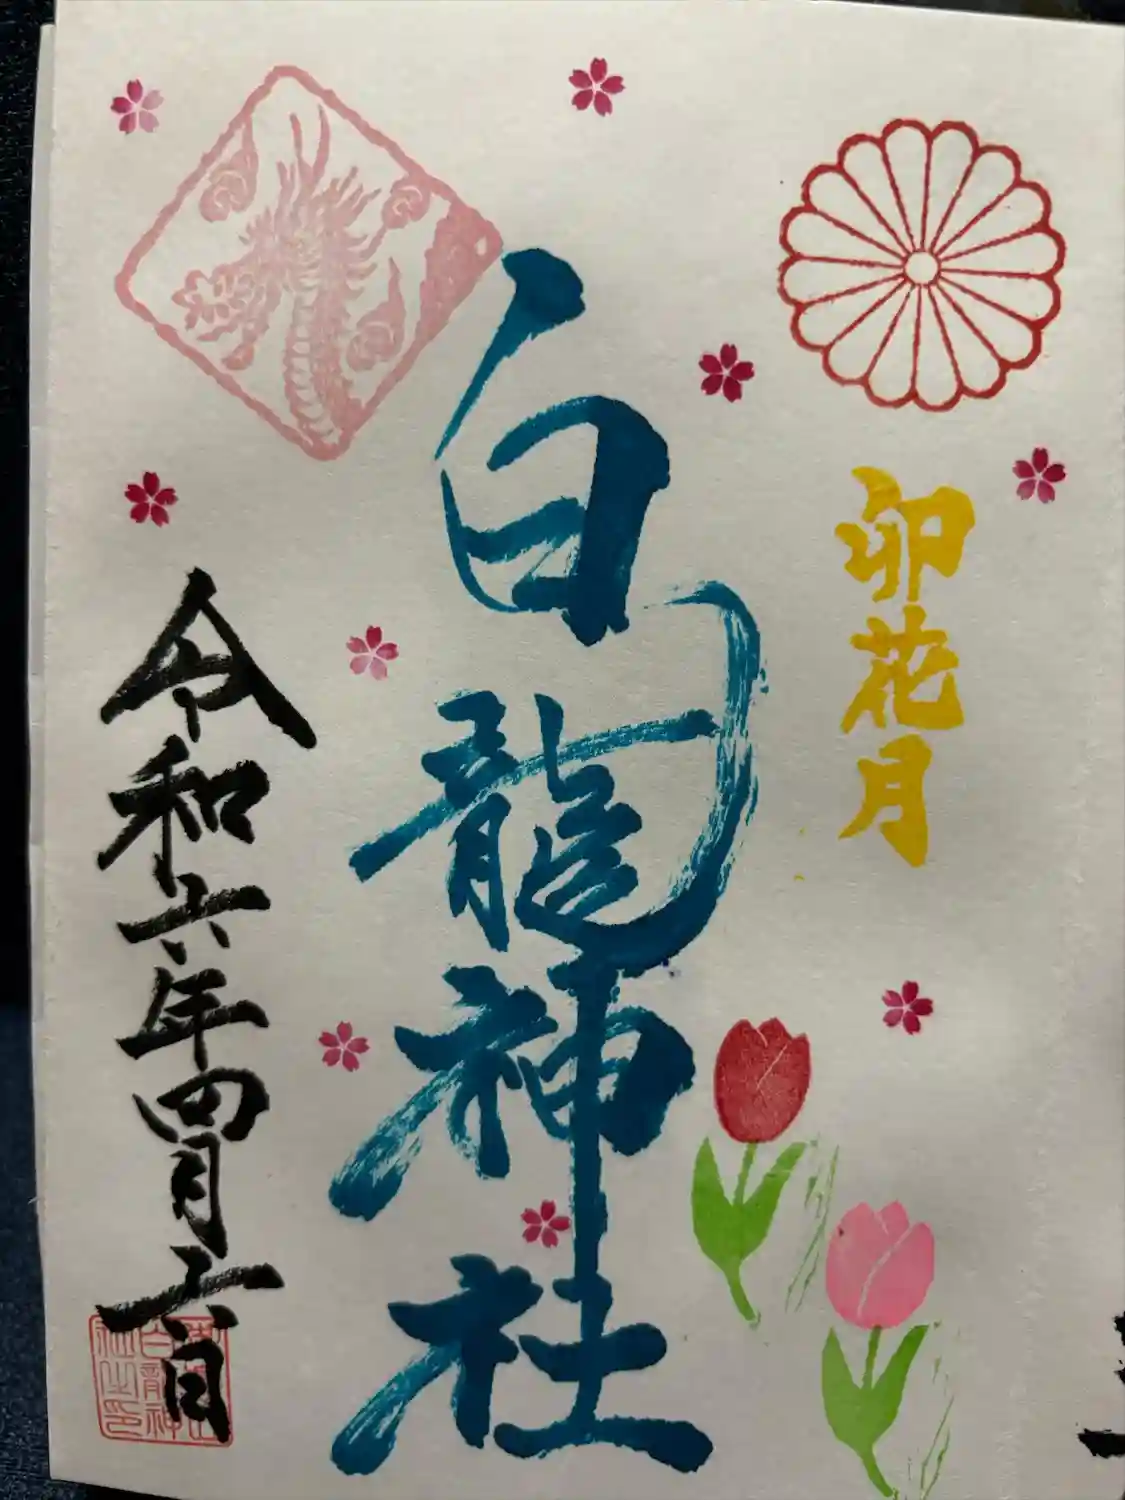 卯花月
白龍神社
令和六年四月六日